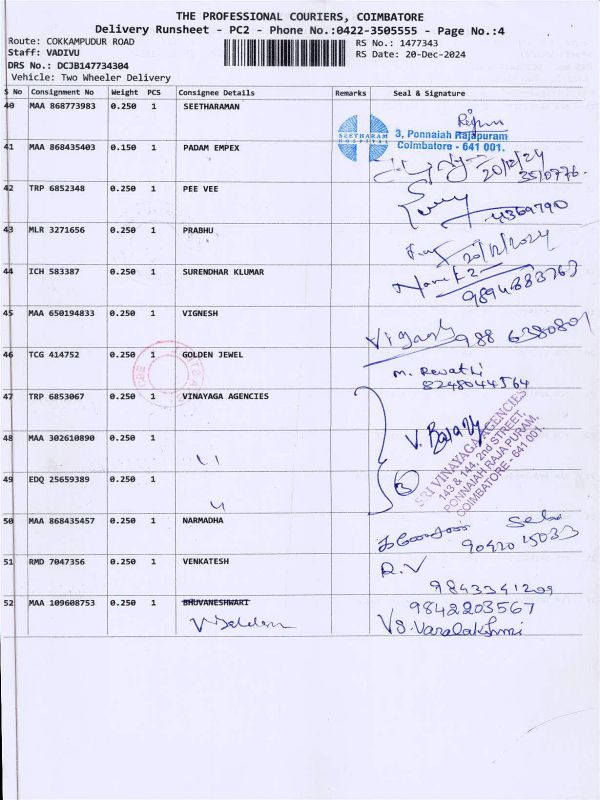 THE PROFESSIONAL COURIERS, COIMBATORE
Delivery Runsheet - PC2 - Phone No.:0422-3505555 - Page No.:4
Route: COKKAMPUDUR ROAD RS No.: 1477343
Staff: VADIVU RS Date: 20-Dec-2024
DRS No.: DCJB147734304
Vehicle: Two Wheeler Delivery
S No Consignment No Weight PCS Consignee Details Remarks Seal & Signature
40 MAA 868773983 0.250 1 SEETHARAMAN
SEETHARAM HOSPITAL
3, Ponnaiah Rajapuram
Coimbatore - 641 001.
41 MAA 868435403 0.150 1 PADAM EMPEX
20/12/24
3510776.
42 TRP 6852348 0.250 1 PEE VEE
4369790
43 MLR 3271656 0.250 1 PRABHU
20/12/2024
44 ICH 583387 0.250 1 SURENDHAR KLUMAR
9894683763
45 MAA 650194833 0.250 1 VIGNESH
988 6380801
46 TCG 414752 0.250 1 GOLDEN JEWEL
M. Revathi
8248044564
47 TRP 6853067 0.250 1 VINAYAGA AGENCIES
SRI VINAYAGA AGENCIES
143 & 144, 2nd STREET,
PONNAIAH RAJA PURAM,
COIMBATORE - 641 001.
48 MAA 302610890 0.250 1 "
49 EDQ 25659389 0.250 1 "
3
50 MAA 868435457 0.250 1 NARMADHA
9042015033
51 RMD 7047356 0.250 1 VENKATESH
R.V
9843341209
52 MAA 109608753 0.250 1 BHUVANESHWARI
9842203567
VS. Varalakshmi